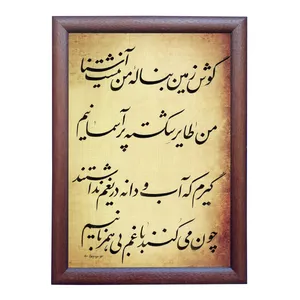 گوش زمین بناله من نیست آشنا
من طایر شکسته پر آسمانیم
گیرم که آب و دانه دریغم نداشتند
چون می کنند با غم بی همزبانیم